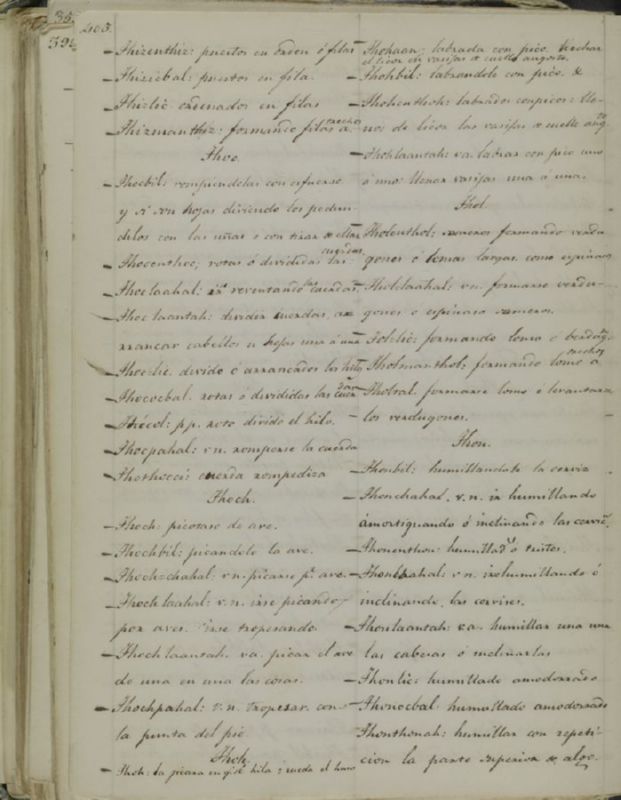 35.
394
403.
— Thizenthiz: puestos en orden ó filas
— Thizicbal: puestos en fila.
— Thizlic ordenados en filas
— Thizmanthiz: formando filas a
trechos
Thoc.
— Thocbil: rompiendolas con esfuerzo
y si son hojas diviendo los
dilos con las uñas o con tirar de ellas
— Thocenthoc; rotas ó divididas las
cuerdas
— Thoclaahal: ir reventando las cuerdas
— Thoclaantah: dividir cuerdas, a
rrancar cabellos u hojas una á una
— Thoclic divido ó arrancados los hilos
— Thococbal. rotas ó divididas las
— Thócol: p.p. roto divido el hilo.
— Thocpahal: v.n. romperse la cuerda
— Thothocci: cuerda rompediza
Thoch.
— Thoch: picotazo de ave.
— Thochbil: picandole la ave.
— Thoch=chahal: v.n. picarse pr. ave.
— Thochlaahal: v.n. irse picando
por aves. irse tropezando.
— Thochlaantah. va. picar el ave
de una en una las cosas.
— Thochpahal: v.n. tropezar con
la punta del pie
Thoh.
— Thoh: la picara en qe. se hila: rueda el huso
— Thohaan: labrada con pico. Hechar
el licor en vasijas de cuello angosto.
— Thohbil: labrandole con pico. &
— Thohenthoh: labrados con picos: lle-
nos de licor las vasijas de cuello angto.
— Thohlaantah: va. labrar con pico uno
á uno: llenar vasijas una á una.
Thol.
— Tholenthol: someros formando verdu
gones ó lomas largas como espinazo
— Thollaahal: v.n. formarse verdu-
gones o espinazo someros.
— Thollic: formando lomo o
— Tholmanthol: formando lomo a
trechos
— Tholtal. formarse lomo ó levantarse
los verdugones.
Thon.
— Thonbil: humillandole la cerviz
— Thonchahal. v.n. ir humillando
amortiguando ó inclinando las
— Thonenthon: humillado ó tristes.
— Thonlaahal: v.n. ir humillando ó
inclinando las cervices.
— Thonlaantah: va. humillar una una
las cabezas ó inclinarlas
— Thonlic: humillado amodorrado
— Thonocbal: humillado amodorrado
— Thonthonah: humillar con repeti
cion la parte superior de algo.